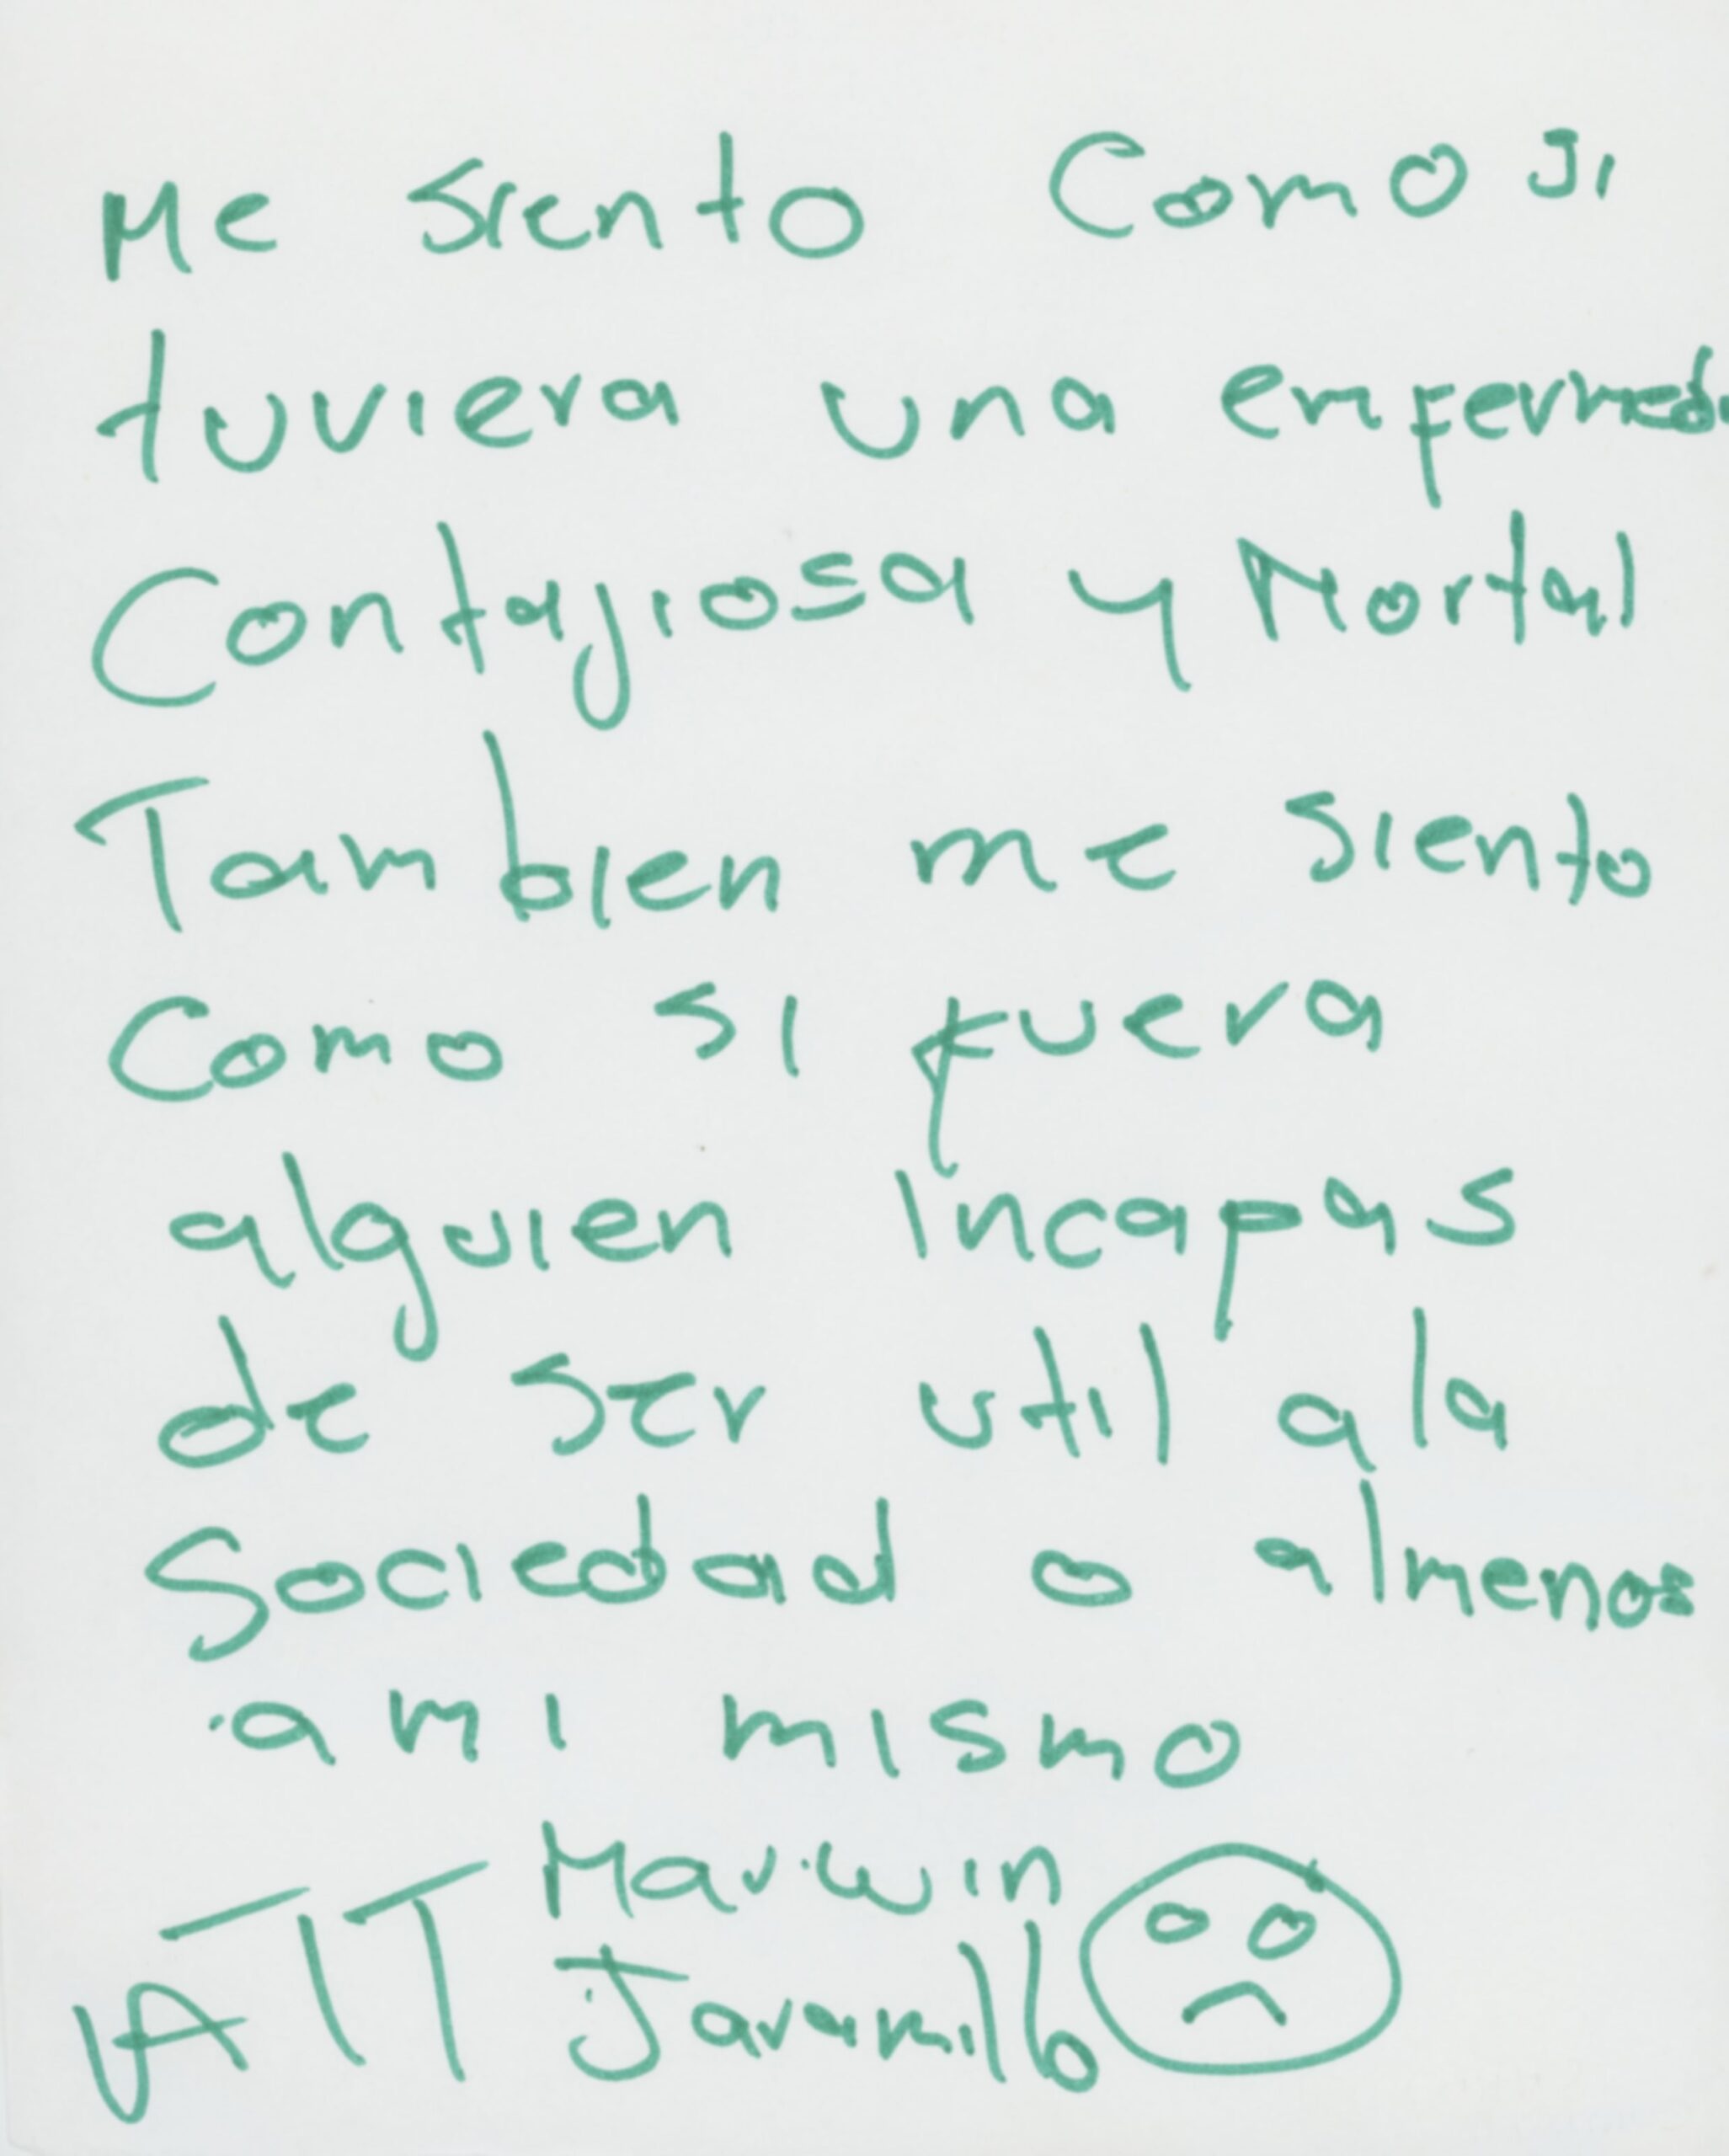 Me siento Como si
tuviera una enfermeda
Contagiosa y Mortal
Tambien me siento
Como si fuera
alguien incapas
de ser util a la
Sociedad o almenos
a mi mismo
ATT Marwin
Jaramillo